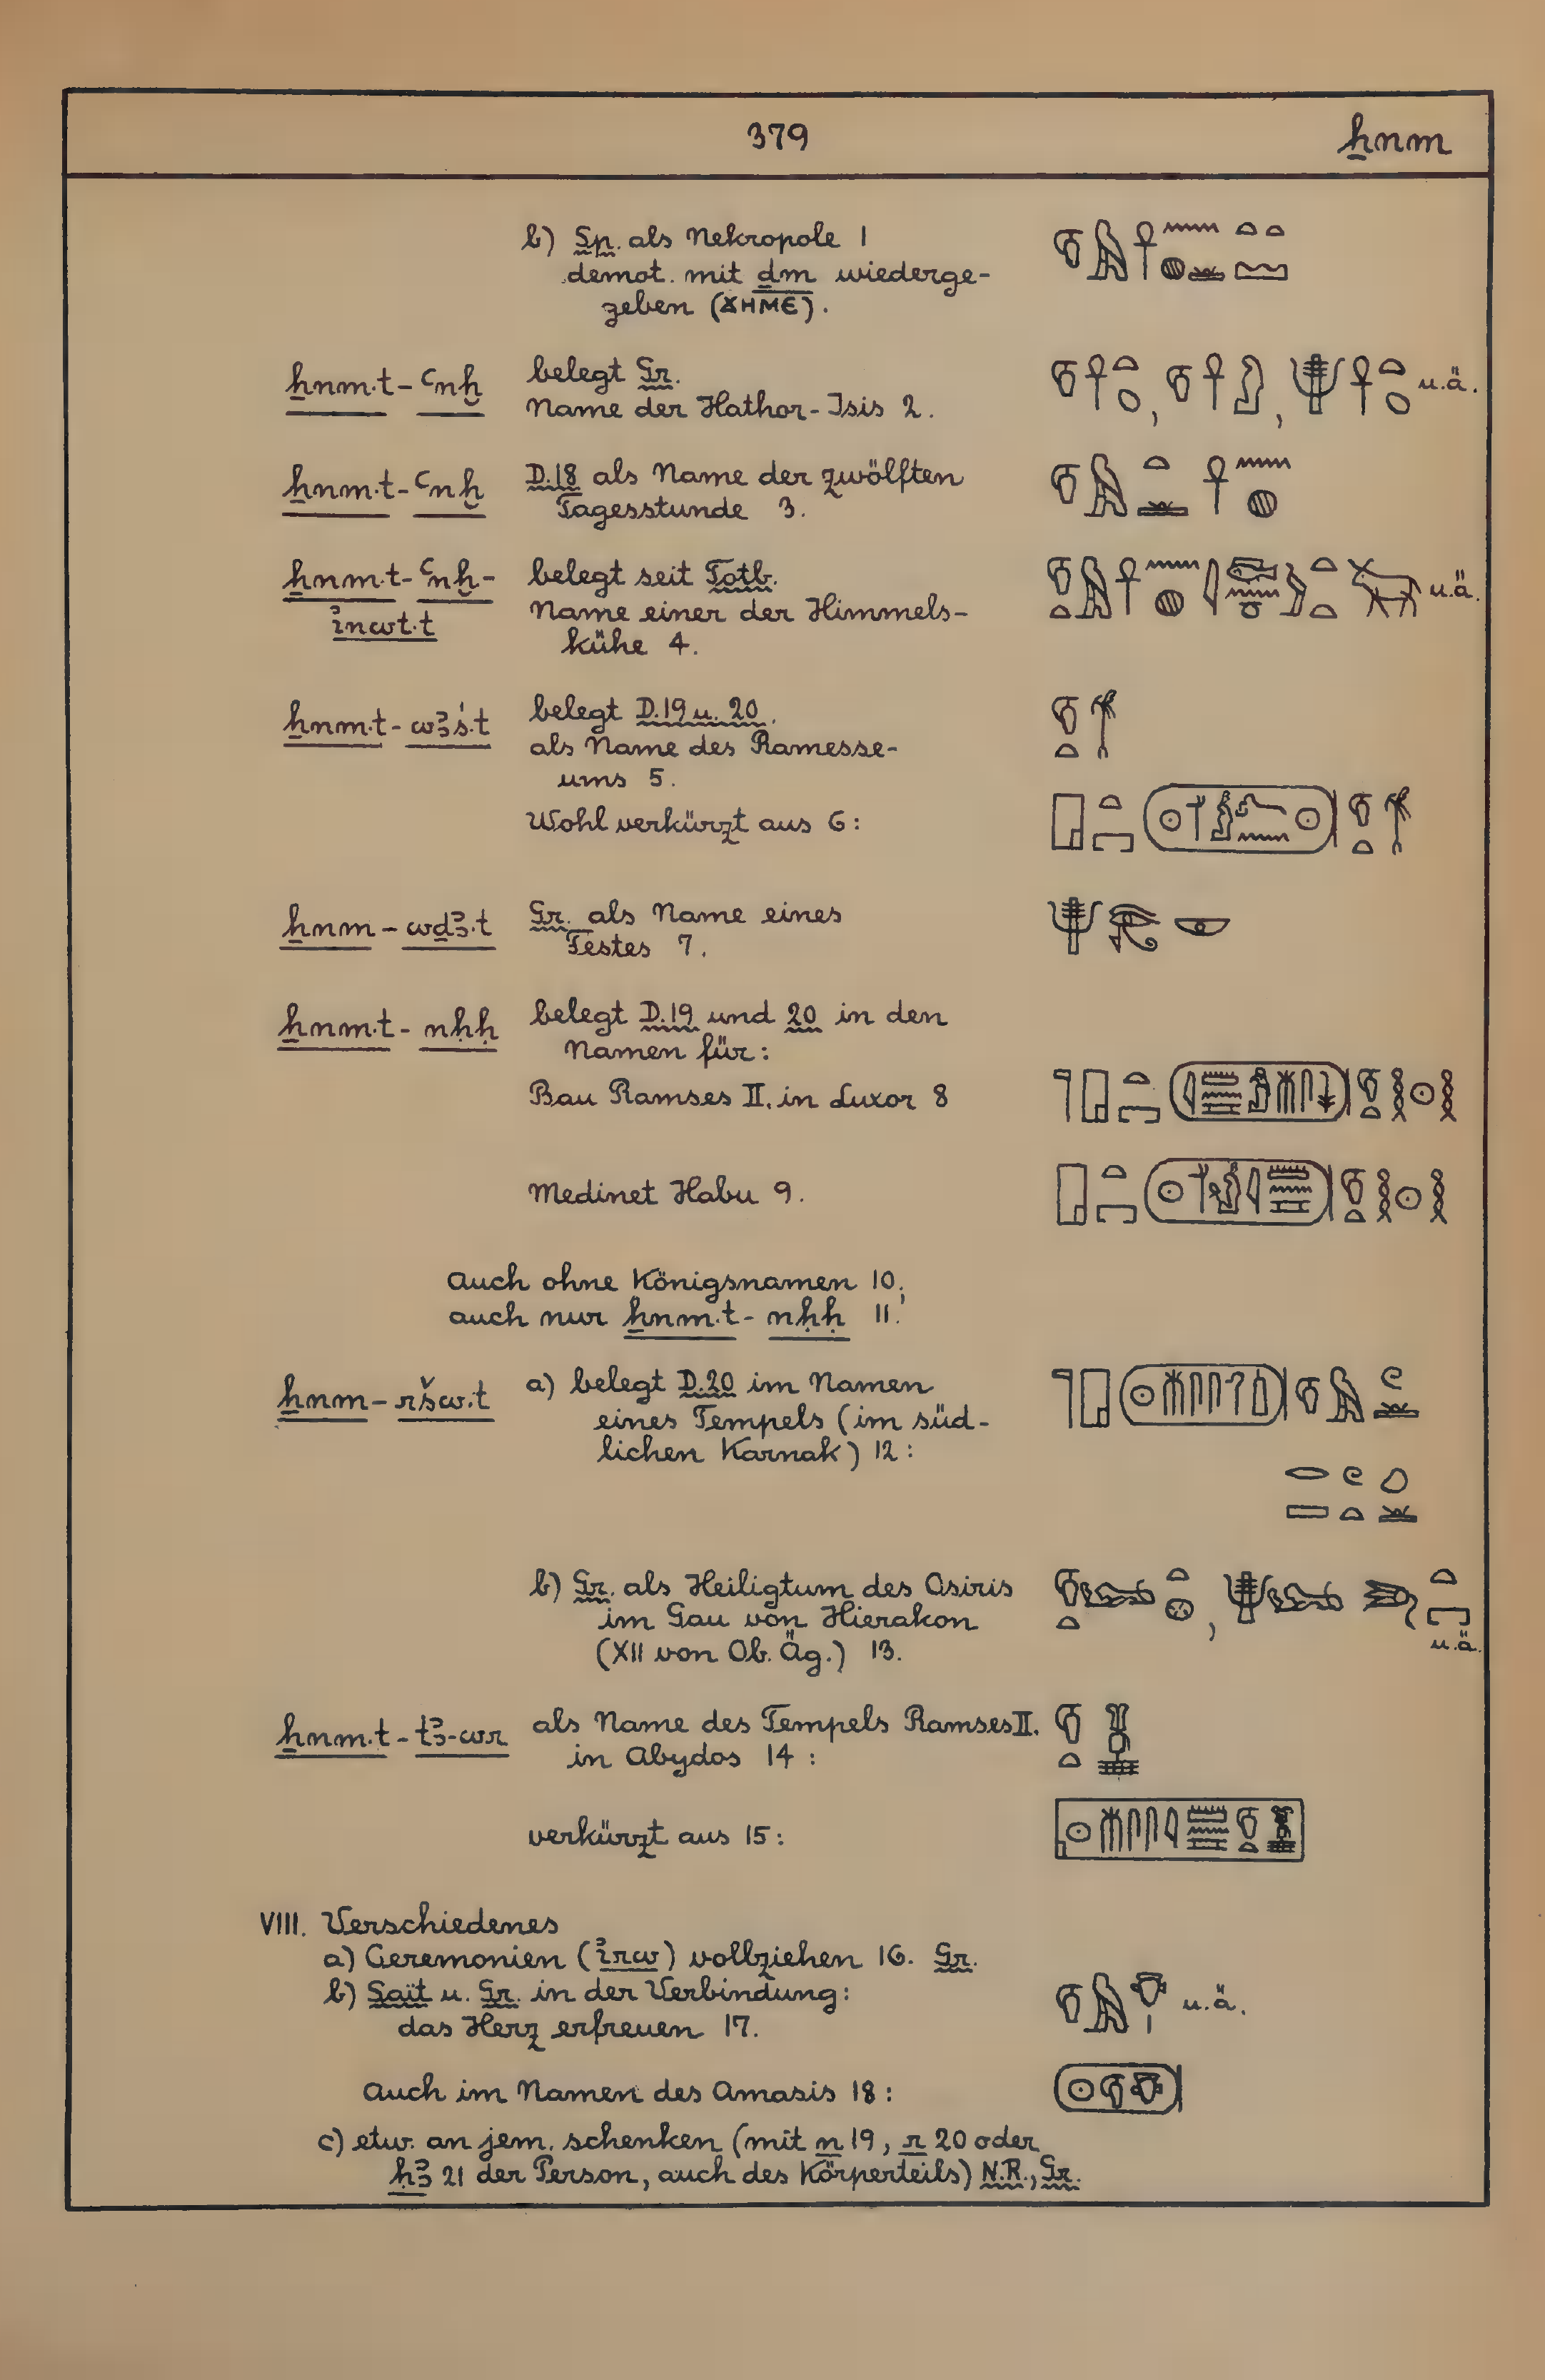 379 ẖnm
b) Sp. als Nekropole 1
demot. mit ḏm wiederge-
geben (ϪΗΜЄ).
ẖnm.t-ꜥnḫ belegt Gr.
Name der Hathor-Isis 2. u.ä.
ẖnm.t-ꜥnḫ D.18 als Name der zwölften
Tagesstunde 3.
ẖnm.t-ꜥnḫ- belegt seit Totb.
Name einer der Himmels- u.ä.
kühe 4.
ẖnm.t-wꜣś.t belegt D.19 u. 20.
als Name des Ramesse-
ums 5.
Wohl verkürzt aus 6:
ẖnm-wḏꜣ.t Gr. als Name eines
Festes 7.
ẖnm.t-nḥḥ belegt D.19 und 20 in den
Namen für:
Bau Ramses II. in Luxor 8
Medinet Habu 9.
auch ohne Königsnamen 10;
auch nur ẖnm.t-nḥḥ 11.
ẖnm-ršw.t a) belegt D.20 im Namen
eines Tempels (im süd-
lichen Karnak) 12:
b) Gr. als Heiligtum des Osiris
im Gau von Hierakon
(XII von Ob. Äg.) 13. u.ä.
ẖnm.t-tꜣ-wr als Name des Tempels Ramses II.
in Abydos 14:
verkürzt aus 15:
VIII. Verschiedenes
a) Ceremonien (ỉrw) vollziehen 16. Gr.
b) Sait u. Gr. in der Verbindung:
das Herz erfreuen 17. u.ä.
Auch im Namen des Amasis 18:
c) etw. an jem. schenken (mit n 19, r 20 oder
21 der Person, auch des Körperteils) N.R., Gr.